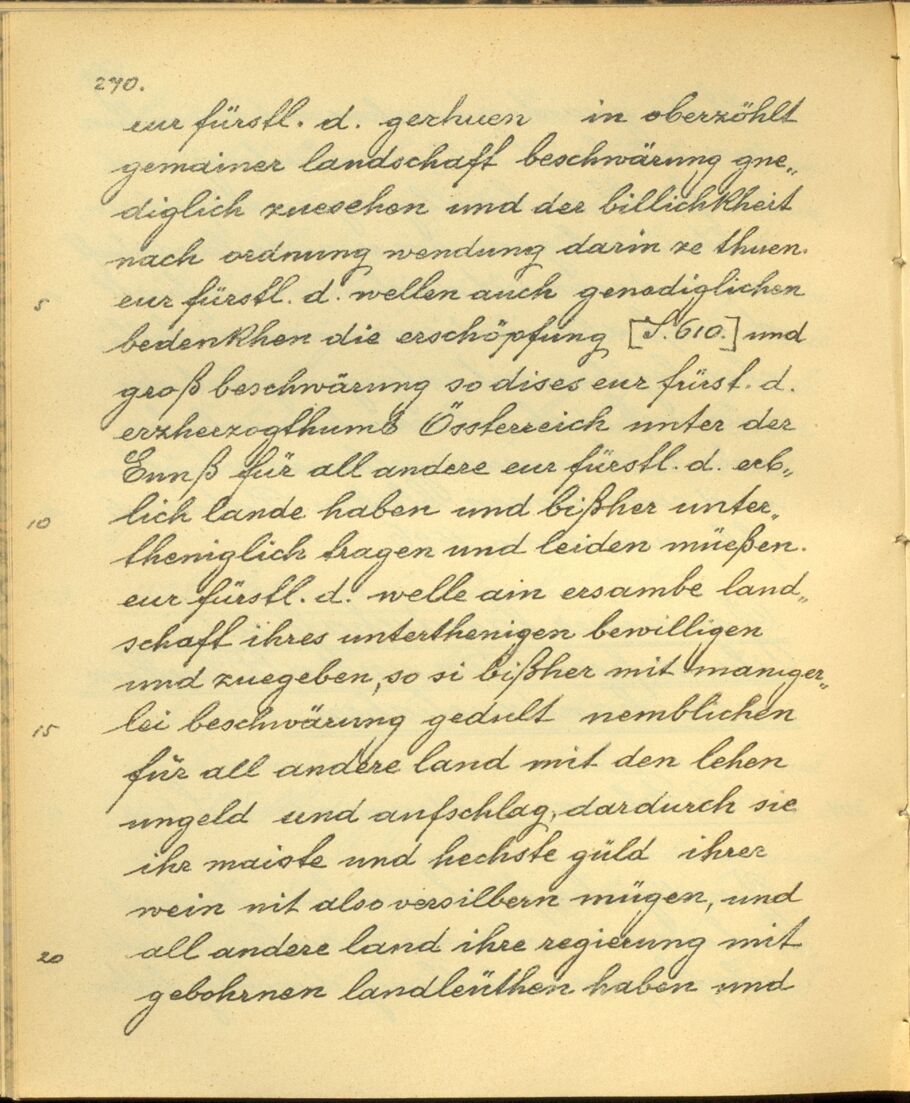 270.
eur fürstl. d. geruhen in oberzöhlt
gemainer landschaft beschwärung gne„
diglich zuesehen und der billichkheit
nach ordnung wendung darin ze thuen.
5 eur fürstl. d. wellen auch genediglichen
bedenkhen die erschöpfung [S. 610.] und
groß beschwärung so dises eur fürst. d.
erzherzogthumb Össterreich unter der
Ennß für all andere eur fürstl. d. erb„
10 lich lande haben und bißher unter„
theniglich tragen und leiden müeßen.
eur fürstl. d. welle ain ersambe land„
schaft ihres unterthenigen bewilligen
und zuegeben, so si bißher mit maniger„
15 lei beschwärung gedult nemblichen
für all andere land mit den lehen
ungeld und aufschlag, dardurch sie
ihr maiste und hechste güld ihrer
wein nit also versilbern mügen, und
20 all andere land ihre regierung mit
gebohrnen landleüthen haben und